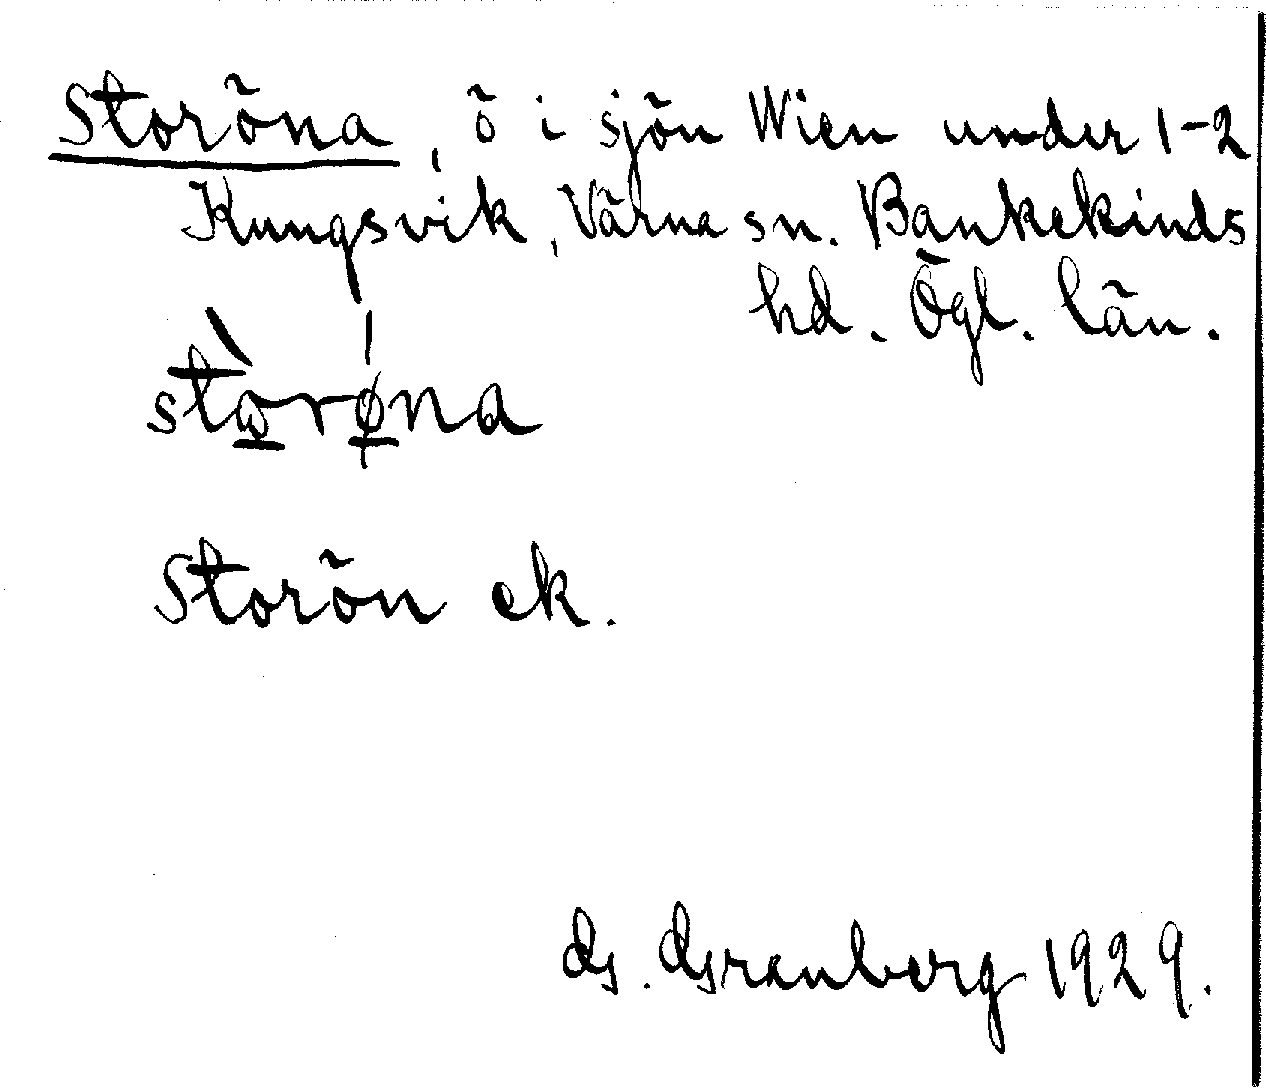 Storöna, ö i sjön Wien under 1-2
Kungsvik, Värna sn. Bankekinds
hd. Ögl. län.
stòrǿna
Storön ek.
G. Granberg 1929.